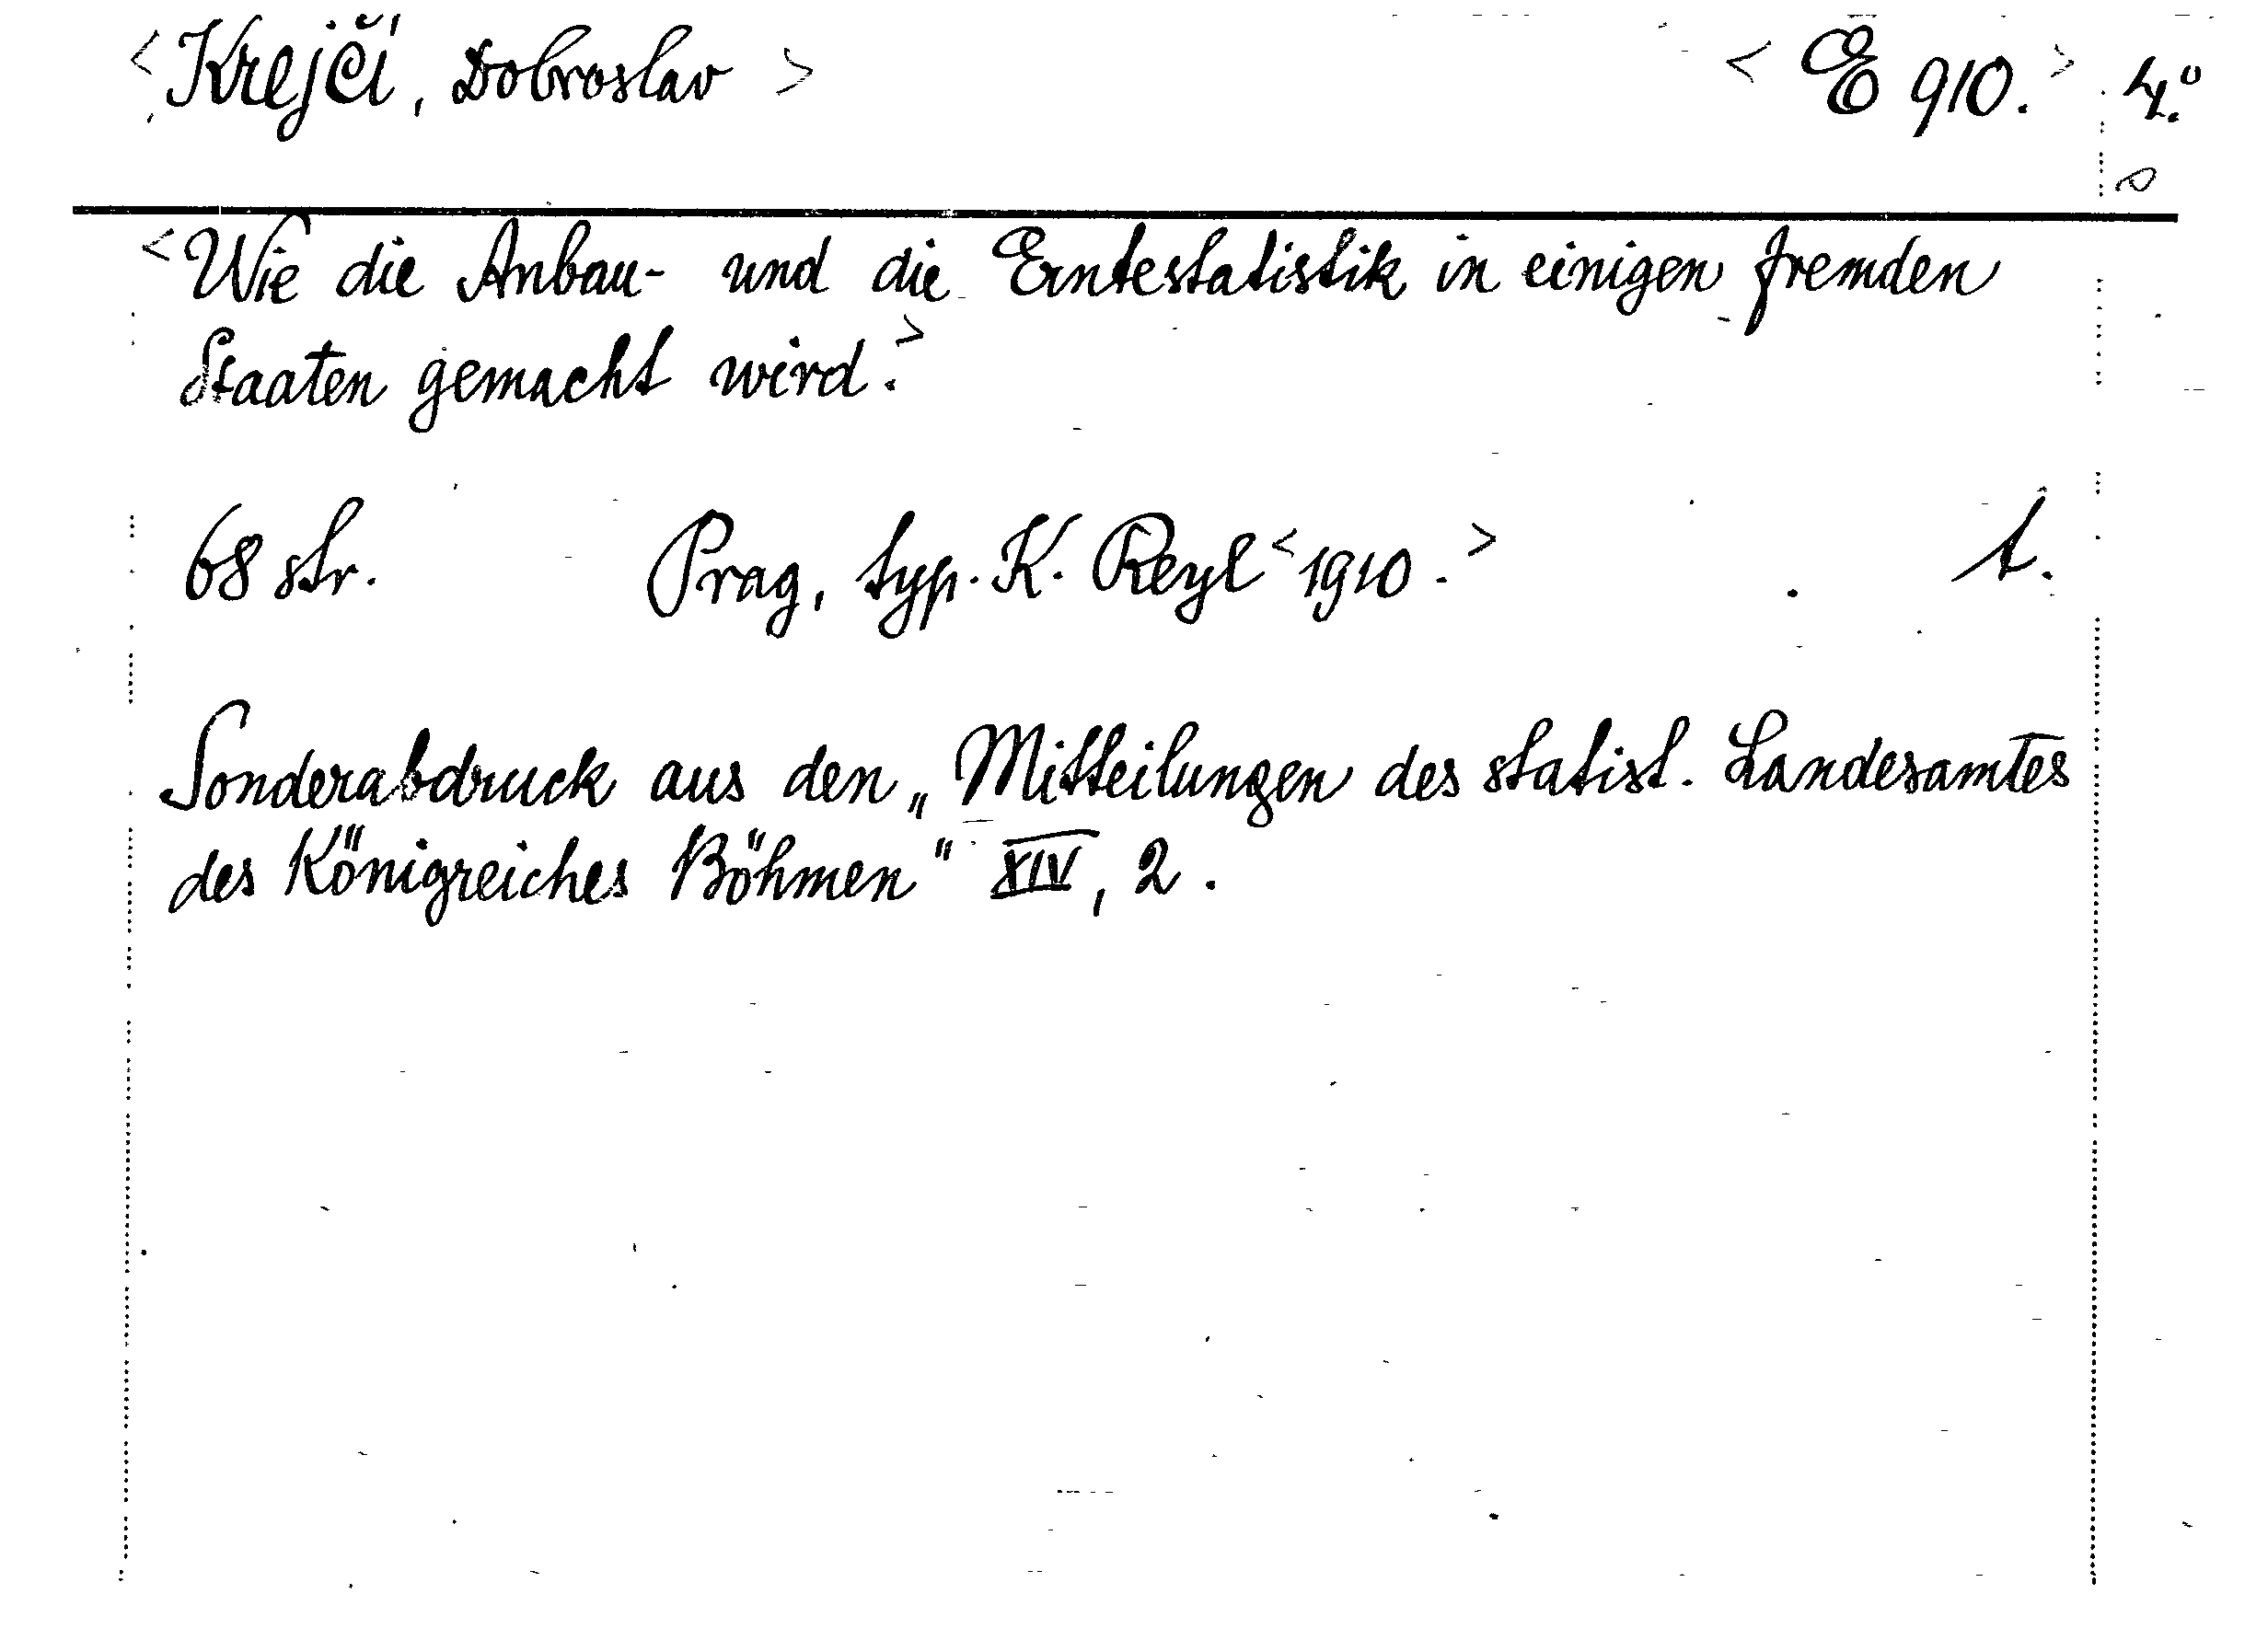 <Krejčí, Dobroslav> <E 910.> 4.°
<Wie die Anbau- und die Erntestatistik in einigen fremden
Staaten gemacht wird.>
68 str. Prag, typ. K. Reyl <1910.> t.
Sonderabdruck aus den „Mitteilungen des statist. Landesamtes
des Königreiches Böhmen" XIV, 2.